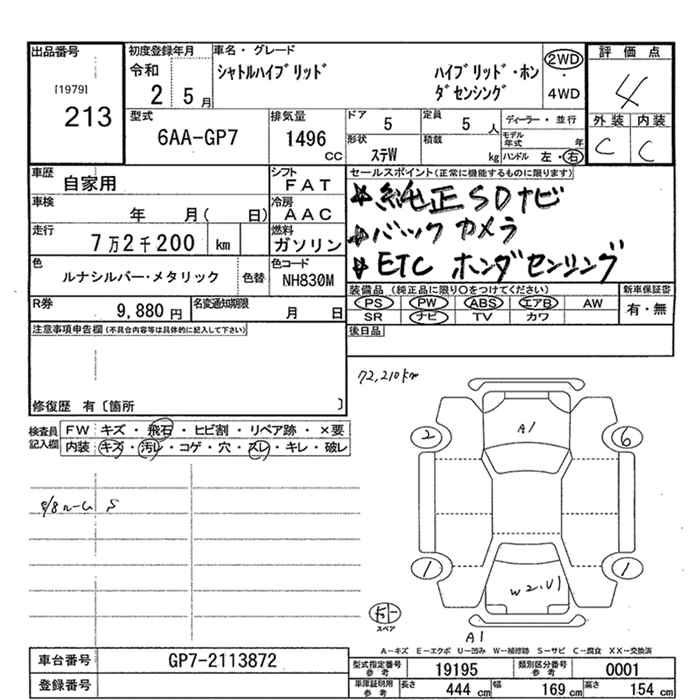 出品番号 初度登録年月 車名・グレード 評価点
[1979] 213
令和 2 5月
シャトルハイブリッド ハイブリッド・ホンダセンシング
2WD・4WD
4
型式 6AA-GP7
排気量 1496 cc
ドア 5
定員 5人
形状 ステW
積載 kg
ディーラー・並行
モデル年式 年
ハンドル 左・右
外装 内装
C C
車歴 自家用
シフト FAT
車検 年 月( 日)
冷房 AAC
走行 7万2千200 km
燃料 ガソリン
色 ルナシルバー・メタリック 色替
色コード NH830M
R券 9,880円
名変通知期限 月 日
セールスポイント(正常に機能するものに限ります)
純正SDナビ
バックカメラ
ETC ホンダセンシング
装備品 (純正品に限り○をつけてください) 新車保証書
PS PW ABS エアB AW 有・無
SR ナビ TV カワ
後日品
注意事項申告欄(不具合内容等は具体的に記入して下さい)
修復歴 有〔箇所 〕
72,210km
検査員記入欄
FW キズ・飛石・ヒビ割・リペア跡・×要
内装 キズ・汚レ・コゲ・穴・スレ・キレ・破レ
A1
2 6
1 1
W2.U1
スペア
A1
A-キズ E-エクボ U-凹み W-補修跡 S-サビ C-腐食 XX-交換済
車台番号 GP7-2113872
登録番号
型式指定番号 参考 19195 類別区分番号 参考 0001
車庫証明用 参考 長さ 444cm 幅 169cm 高さ 154cm